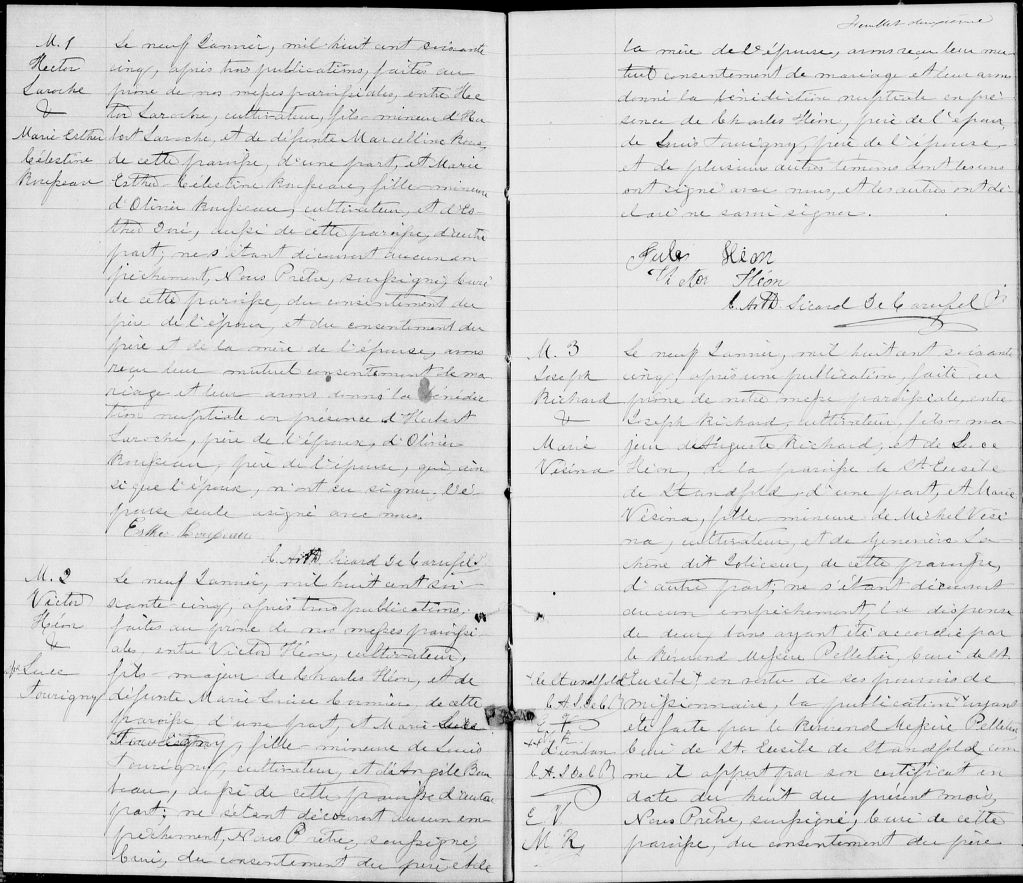 M. 1
Hector
Laroche
&
Marie Esther
Célestine
Rousseau
Le neuf Janvier, mil huit cent soixante
cinq, après trois publications, faites au
prône de nos messes paroissiales, entre Hec
tor Laroche, cultivateur, fils mineur d'Hu
bert Laroche, et de défunte Marcelline
de cette paroisse, d'une part, et Marie
Esther Célestine Rousseau, fille mineure
d'Olivier Rousseau, cultivateur, et d'Es
ther aussi de cette paroisse, d'autre
part; ne s'étant découvert aucun em
pêchement, Nous Prêtre, soussigné, Curé
de cette paroisse, du consentement du
père de l'époux, et du consentement du
père et de la mère de l'épouse, avons
reçu leur mutuel consentement de ma
riage et leur avons donné la bénédic
tion nuptiale en présence d'Hubert
Laroche, père de l'époux, d'Olivier
Rousseau, père de l'épouse, qui, ain
si que l'époux, n'ont su signer, l'é
pouse seule a signé avec nous.
Esther Rousseau
C. Arth Sicard De Carufel P.
M. 2
Victor
Héon
&
Luce
Tourigny
Le neuf Janvier, mil huit cent soi
xante-cinq, après trois publications,
faites au prône de nos messes paroissi
ales, entre Victor Héon, cultivateur,
fils majeur de Charles Héon, et de
défunte Marie Luce Cormier, de cette
paroisse d'une part, et Marie Luce
Tourigny, fille mineure de Louis
Tourigny, cultivateur, et d'Angèle Beau
bien, aussi de cette paroisse d'autre
part; ne s'étant découvert aucun em
pêchement, Nous Prêtre, soussigné,
Curé, du consentement du père et de
Feuillet deuxième
la mère de l'épouse, avons reçu leur mu
tuel consentement de mariage et leur avons
donné la bénédiction nuptiale en pré
sence de Charles Héon, père de l'époux,
de Louis Tourigny, père de l'épouse,
et de plusieurs autres témoins dont les uns
ont signé avec nous, et les autres ont dé
claré ne savoir signer.
Jules Héon
Victor Héon
C. Arth Sicard De Carufel Ptr
M. 3
Joseph
Richard
&
Marie
Vésina
Le neuf Janvier, mil huit cent soixante
cinq, après une publication, faite au
prône de notre messe paroissiale, entre
Joseph Richard, cultivateur, fils ma
jeur de Auguste Richard, et de Luce
Héon, de la paroisse de St. Eusèbe
de Standfold, d'une part, et Marie
Vésina, fille mineure de Michel Vési
na, cultivateur, et de Geneviève La
chène dit Jolicoeur, de cette paroisse,
d'autre part; ne s'étant découvert
aucun empêchement, la dispense
de deux bans ayant été accordée par
le Révérend Messire Pelletier, Curé de St.
+ de Standfold
C. A. S. De C. P.
Eusèbe + en vertu de ses pouvoirs de
missionnaire, la publication ++ ayant
++ d'un ban
C. A. S. De C. P.
été faite par le Révérend Messire Pelletier
Curé de St. Eusèbe de Standfold com
me il appert par son certificat en
date du huit du présent mois,
E V
M. R.
Nous Prêtre, soussigné, Curé de cette
paroisse, du consentement du père